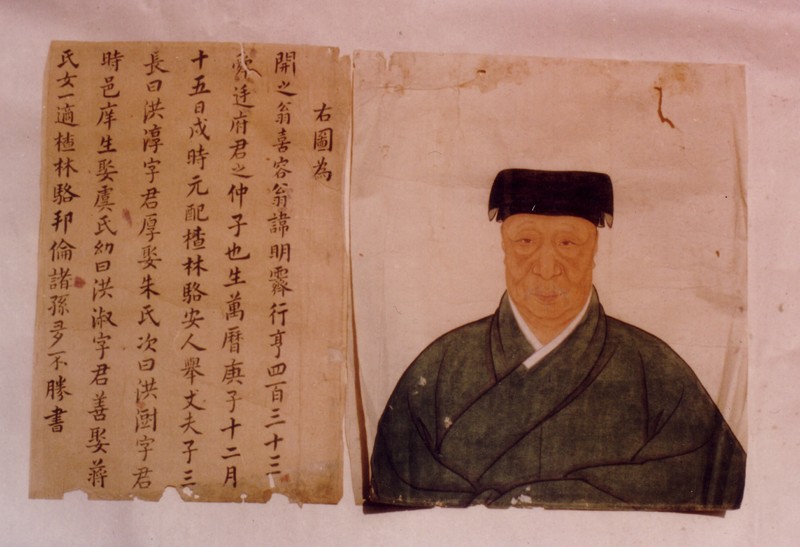 右圖為
開之翁喜容翁諱明霽行亨四百三十三
廷府君之仲子也生萬曆庚子十二月
十五日戌時元配楂林駱安人舉丈夫子三
長曰洪淳字君厚娶朱氏次曰洪澍字君
時邑庠生娶虞氏幼曰洪淑字君善娶蔣
氏女一適楂林駱邦倫諸孫多不勝書